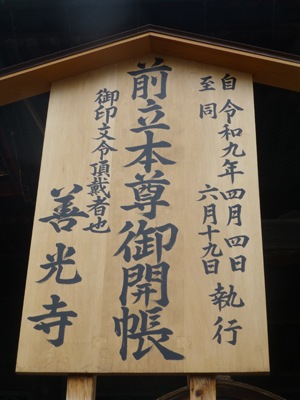 自令和九年四月四日
至同六月十九日
執行
前立本尊御開帳
御印文令頂戴者也
善光寺